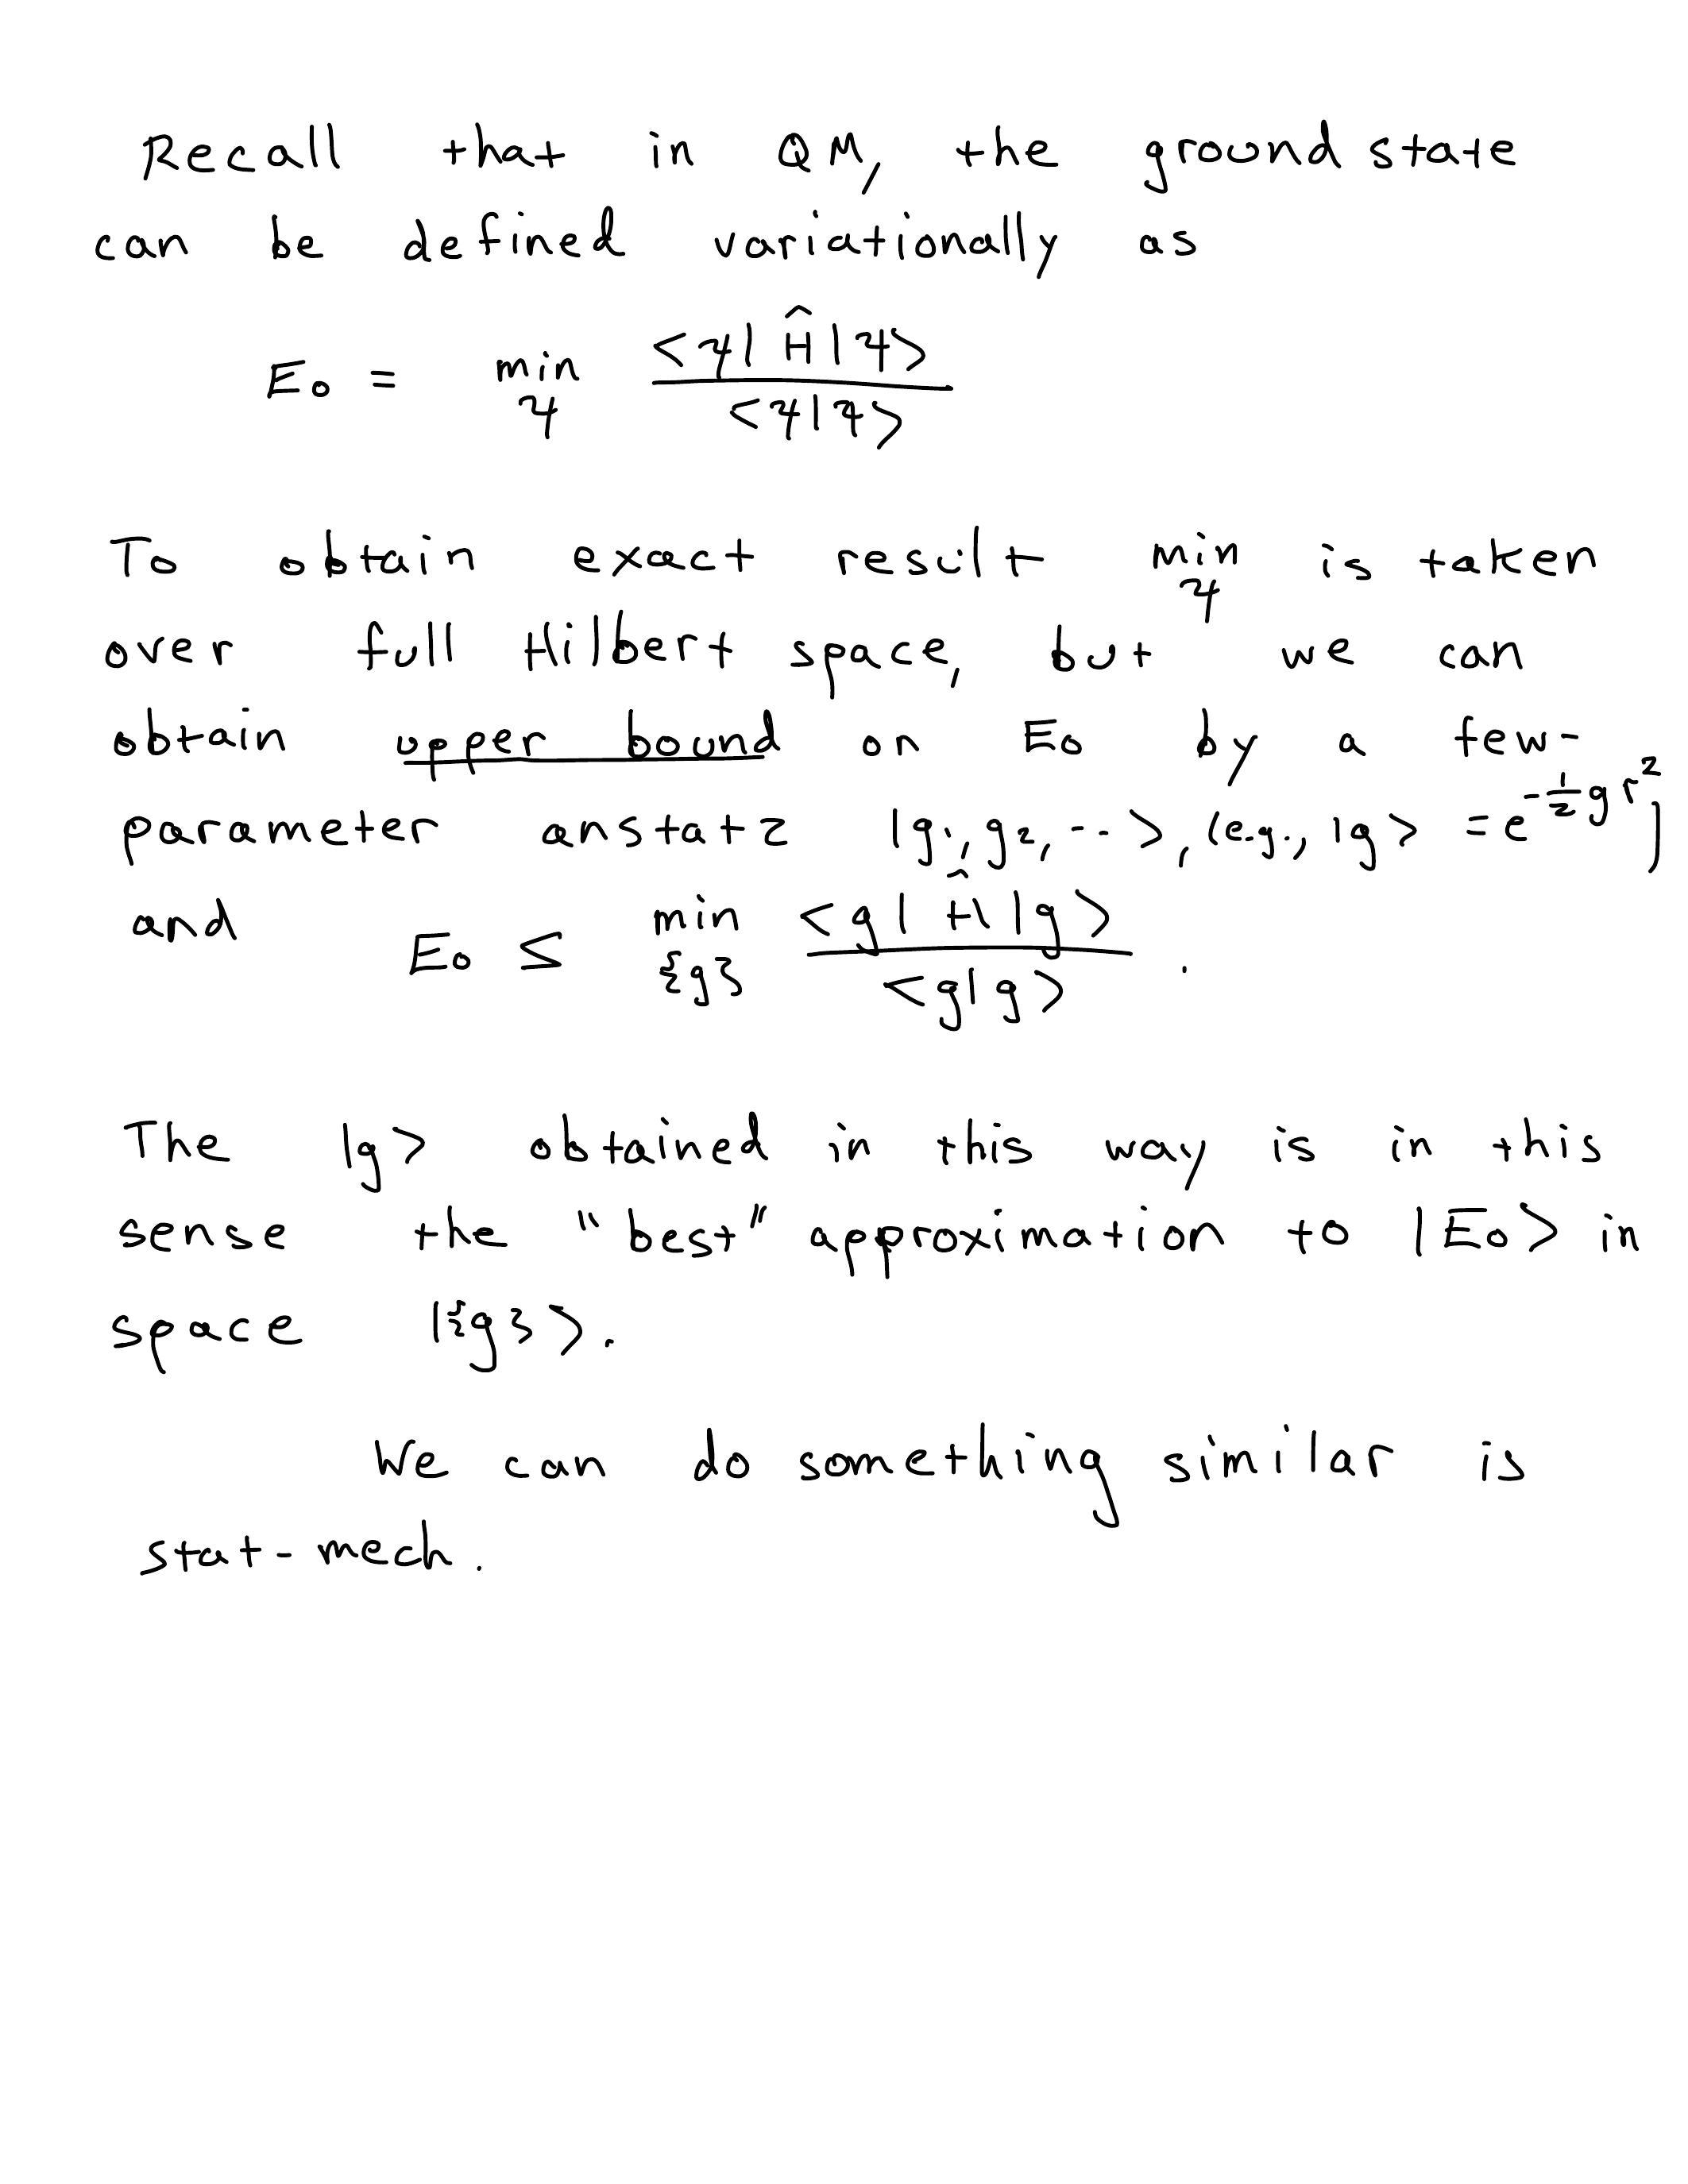 Recall that in QM, the ground state
can be defined variationally as
E₀ = min_ψ <ψ|Ĥ|ψ> / <ψ|ψ>
To obtain exact result min_ψ is taken
over full Hilbert space, but we can
obtain upper bound on E₀ by a few-
parameter anstatz |g₁, g₂, ...>, (e.g., |g> = e^{-½gr²})
and E₀ ≤ min_{g} <g|Ĥ|g> / <g|g> .
The |g> obtained in this way is in this
sense the "best" approximation to |E₀> in
space |{g}>.
We can do something similar is
stat-mech.